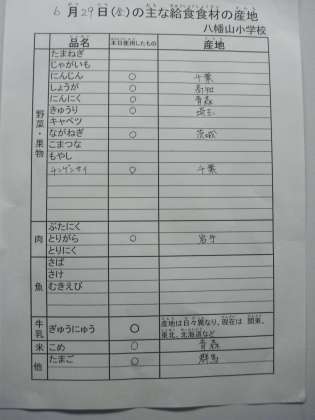 6月29日(金)の主な給食食材の産地
八幡山小学校
品名 本日使用したもの 産地
野菜・果物
たまねぎ
じゃがいも
にんじん ○ 千葉
しょうが ○ 高知
にんにく ○ 青森
きゅうり ○ 埼玉
キャベツ
ながねぎ ○ 茨城
こまつな
もやし
チンゲンサイ ○ 千葉
肉
ぶたにく
とりがら ○ 岩手
とりにく
魚
さば
さけ
むきえび
牛乳 ぎゅうにゅう ○ 産地は日々異なり、現在は 関東、
東北、北海道など
米 こめ ○ 青森
他 たまご ○ 群馬